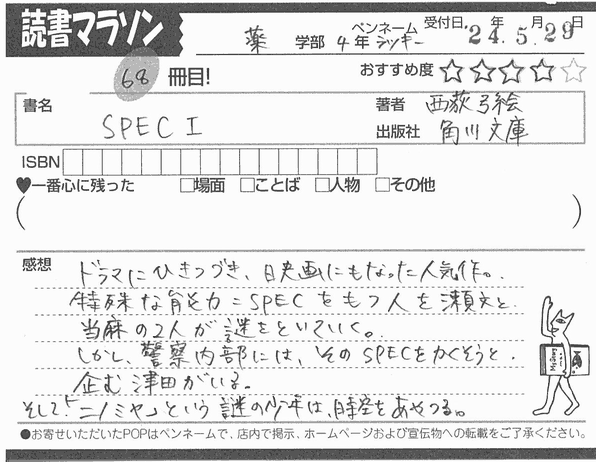 読書マラソン
薬 学部 4年 ペンネーム ラッキー 受付日 24年5月29日
68 冊目!
おすすめ度 ★★★★☆
書名 SPEC I
著者 西荻弓絵
出版社 角川文庫
ISBN
♥一番心に残った □場面 □ことば □人物 □その他
( )
感想
ドラマにひきつづき、映画にもなった人気作。
特殊な能力=SPECをもつ人を瀬文と
当麻の2人が謎をといていく。
しかし、警察内部には、そのSPECをかくそうと
企む津田がいる。
そして「ニノミヤ」という謎の少年は、時空をあやつる。
●お寄せいただいたPOPはペンネームで、店内で掲示、ホームページおよび宣伝物への転載をご了承ください。